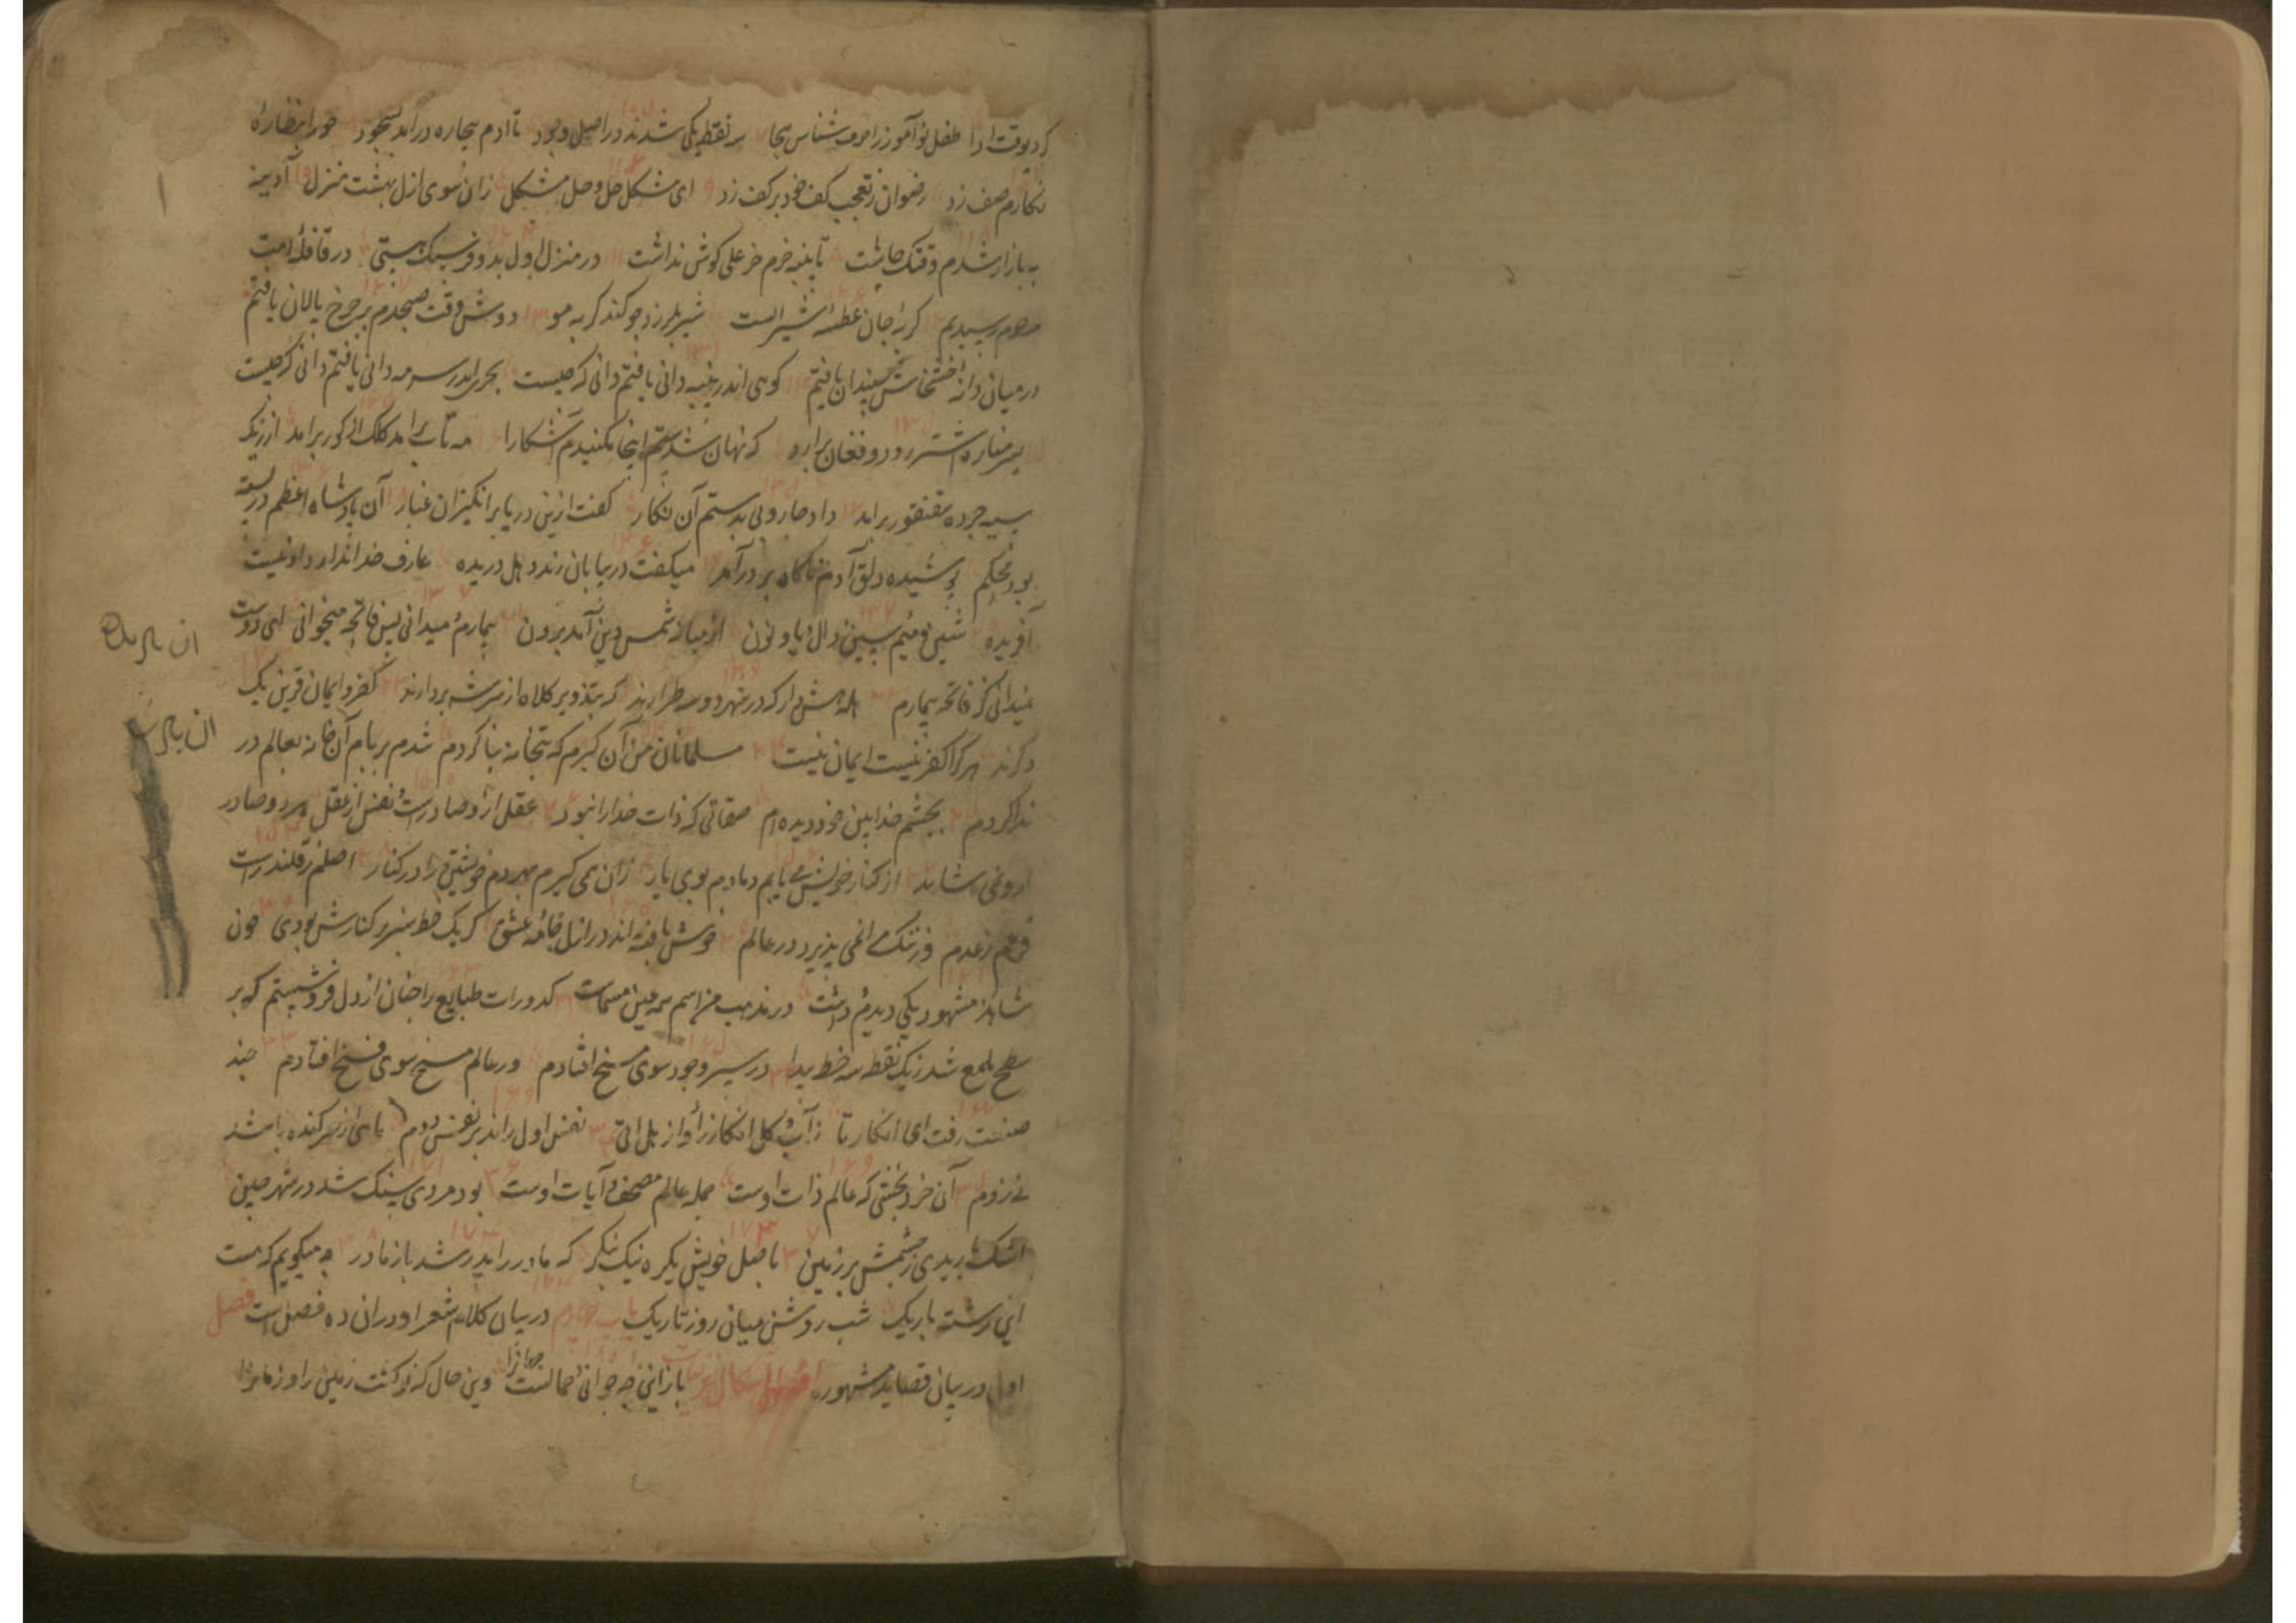 کرد بوقت ادا طفل نوآموز را حرف شناس هجا سه نقطه یکی شدند در اصل وجود تا ادم بیچاره درآمد بسجود حورا بنظارهٔ
نکارم صف زد رضوان ز تعجب کف خود بر کف زد ای مشکل حل و حل مشکل زان سوی ازل بهشت منزل آدینه
به بازار شدم وقتک چاشت تا پنبه خرم خر علی کوش نداشت در منزل اول بدو فرسنک هستی در قافلهٔ امت
مرحوم رسیدیم کربه را جان عطسهٔ شیر است شیر بلرزد چو کند کربه مو دوش وقت صبحدم بر چرخ پالان یافتم
در میان دانهٔ خشخاش سندان یافتم کوهی اندر پنبه دانی یافتم دانی که چیست بحری اندر سرمه دانی یافتم دانی که چیست
بسر مناره اشتر رود و فغان برارد که نهان شدستم اینجا مکنیدم آشکارا مه تاب برامد کلک از کور برامد از زیک
سیه چرده سقنقور برامد داد جاروبی بدستم آن نکار کفت ازین دریا برانکیزان غبار آن پادشاه اعظم در بسته
بود محکم پوشیده دلق آدم ناکاه بر در آمد میکفت در بیابان رند دهل دریده عارف خدا ندارد او نیست
آفریده شین و میم سین دال و یا و نون از میانه شمس دین آمد برون بیمارم و میدانی پس فاتحه میخوانی ای دوست
نمیدانی کز فاتحه بیمارم هله هش دار که در شهر دو سه طرارند که بتذویر کلاه از سر شه بردارند کفر و ایمان قرین یک
دکرند هر که را کفر نیست ایمان نیست مسلمانان من آن کبرم که بتخانه بنا کردم شدم بر بام آن خانه بعالم در
ندا کردم بچشم خدا بین خود دیده ام صفاتی که ذات خدا را نبود عقل از و صادرست و نفس از عقل هر دو صادر
ازو نمی شاید از کنار خویش می یابم دمادم بوی یار زان همی کیرم بهردم خویشتن را در کنار اصلم ز قلندرست
فرعم ز عدم وز ننک مرا نمی پذیرد در عالم خوش بافته اند در ازل جامهٔ عشق کر یک خط سبز بر کنارش بودی چون
شاهد مشهود یکی دیدم و داشت در مذهب من اسم همه عین مسماست کدورات طبایع را چنان از دل فرو شستم که بر
سطح ملمع شد ز یک نقطه سه خط پیدا در سیر وجود سوی مسخ افتادم ور عالم مسخ سوی فسخ افتادم چند
صفت رفت ای انکار تا ز آب و کل انکار را واز بل اتی نفس اول راند بر نفس دوم ماهی از سر کنده باشد
نی ز دم آن خرد بخشی که عالم ذات اوست جمله عالم مصحف و آیات اوست بود مردی سنک شد در شهر چین
اشک باریدی ز چشمش بر زمین باصل خویش یکره نیک بنکر که مادر را پدر شد باز مادر چه میکویم که هست
این رشته باریک شب روشن میان روز تاریک باب چهارم در بیان کلام شعرا و دران ده فصل است فصل
اول در بیان قصاید مشهوره باز این چه جوانی و جمالست جهانرا وین حال که نو کشت زمین را و زمانرا